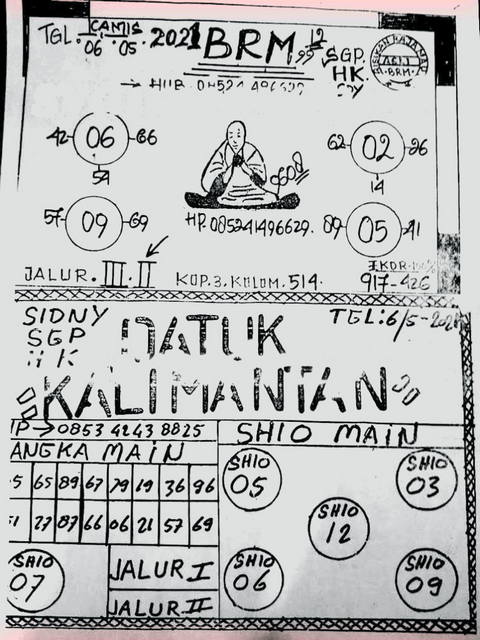 TGL. CAMIS
06 05 2021
BRM
SGP.
HK.
06
42 66
54
02
62 26
14
09
57 69
HP. 085241496629.
05
89 41
JALUR. III. II
KOP. 3. KOLOM. 514.
917-426
SIDNY
SGP
HK
TGL: 6/5-2021
DATUK
KALIMANTAN
0853 4243 8825
SHIO MAIN
ANGKA MAIN
65 89 67 79 19 36 96
27 87 66 06 21 57 69
SHIO
05
SHIO
03
SHIO
12
SHIO
07
JALUR I
JALUR II
SHIO
06
SHIO
09